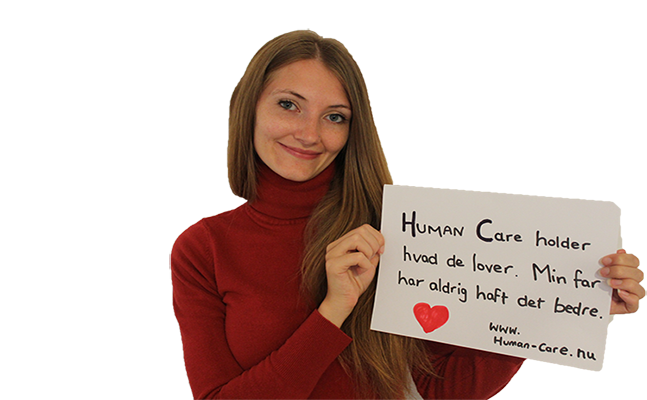 HUMAN CAre holder
hvad de lover. Min far
har aldrig haft det bedre.
www.
Human-Care.nu